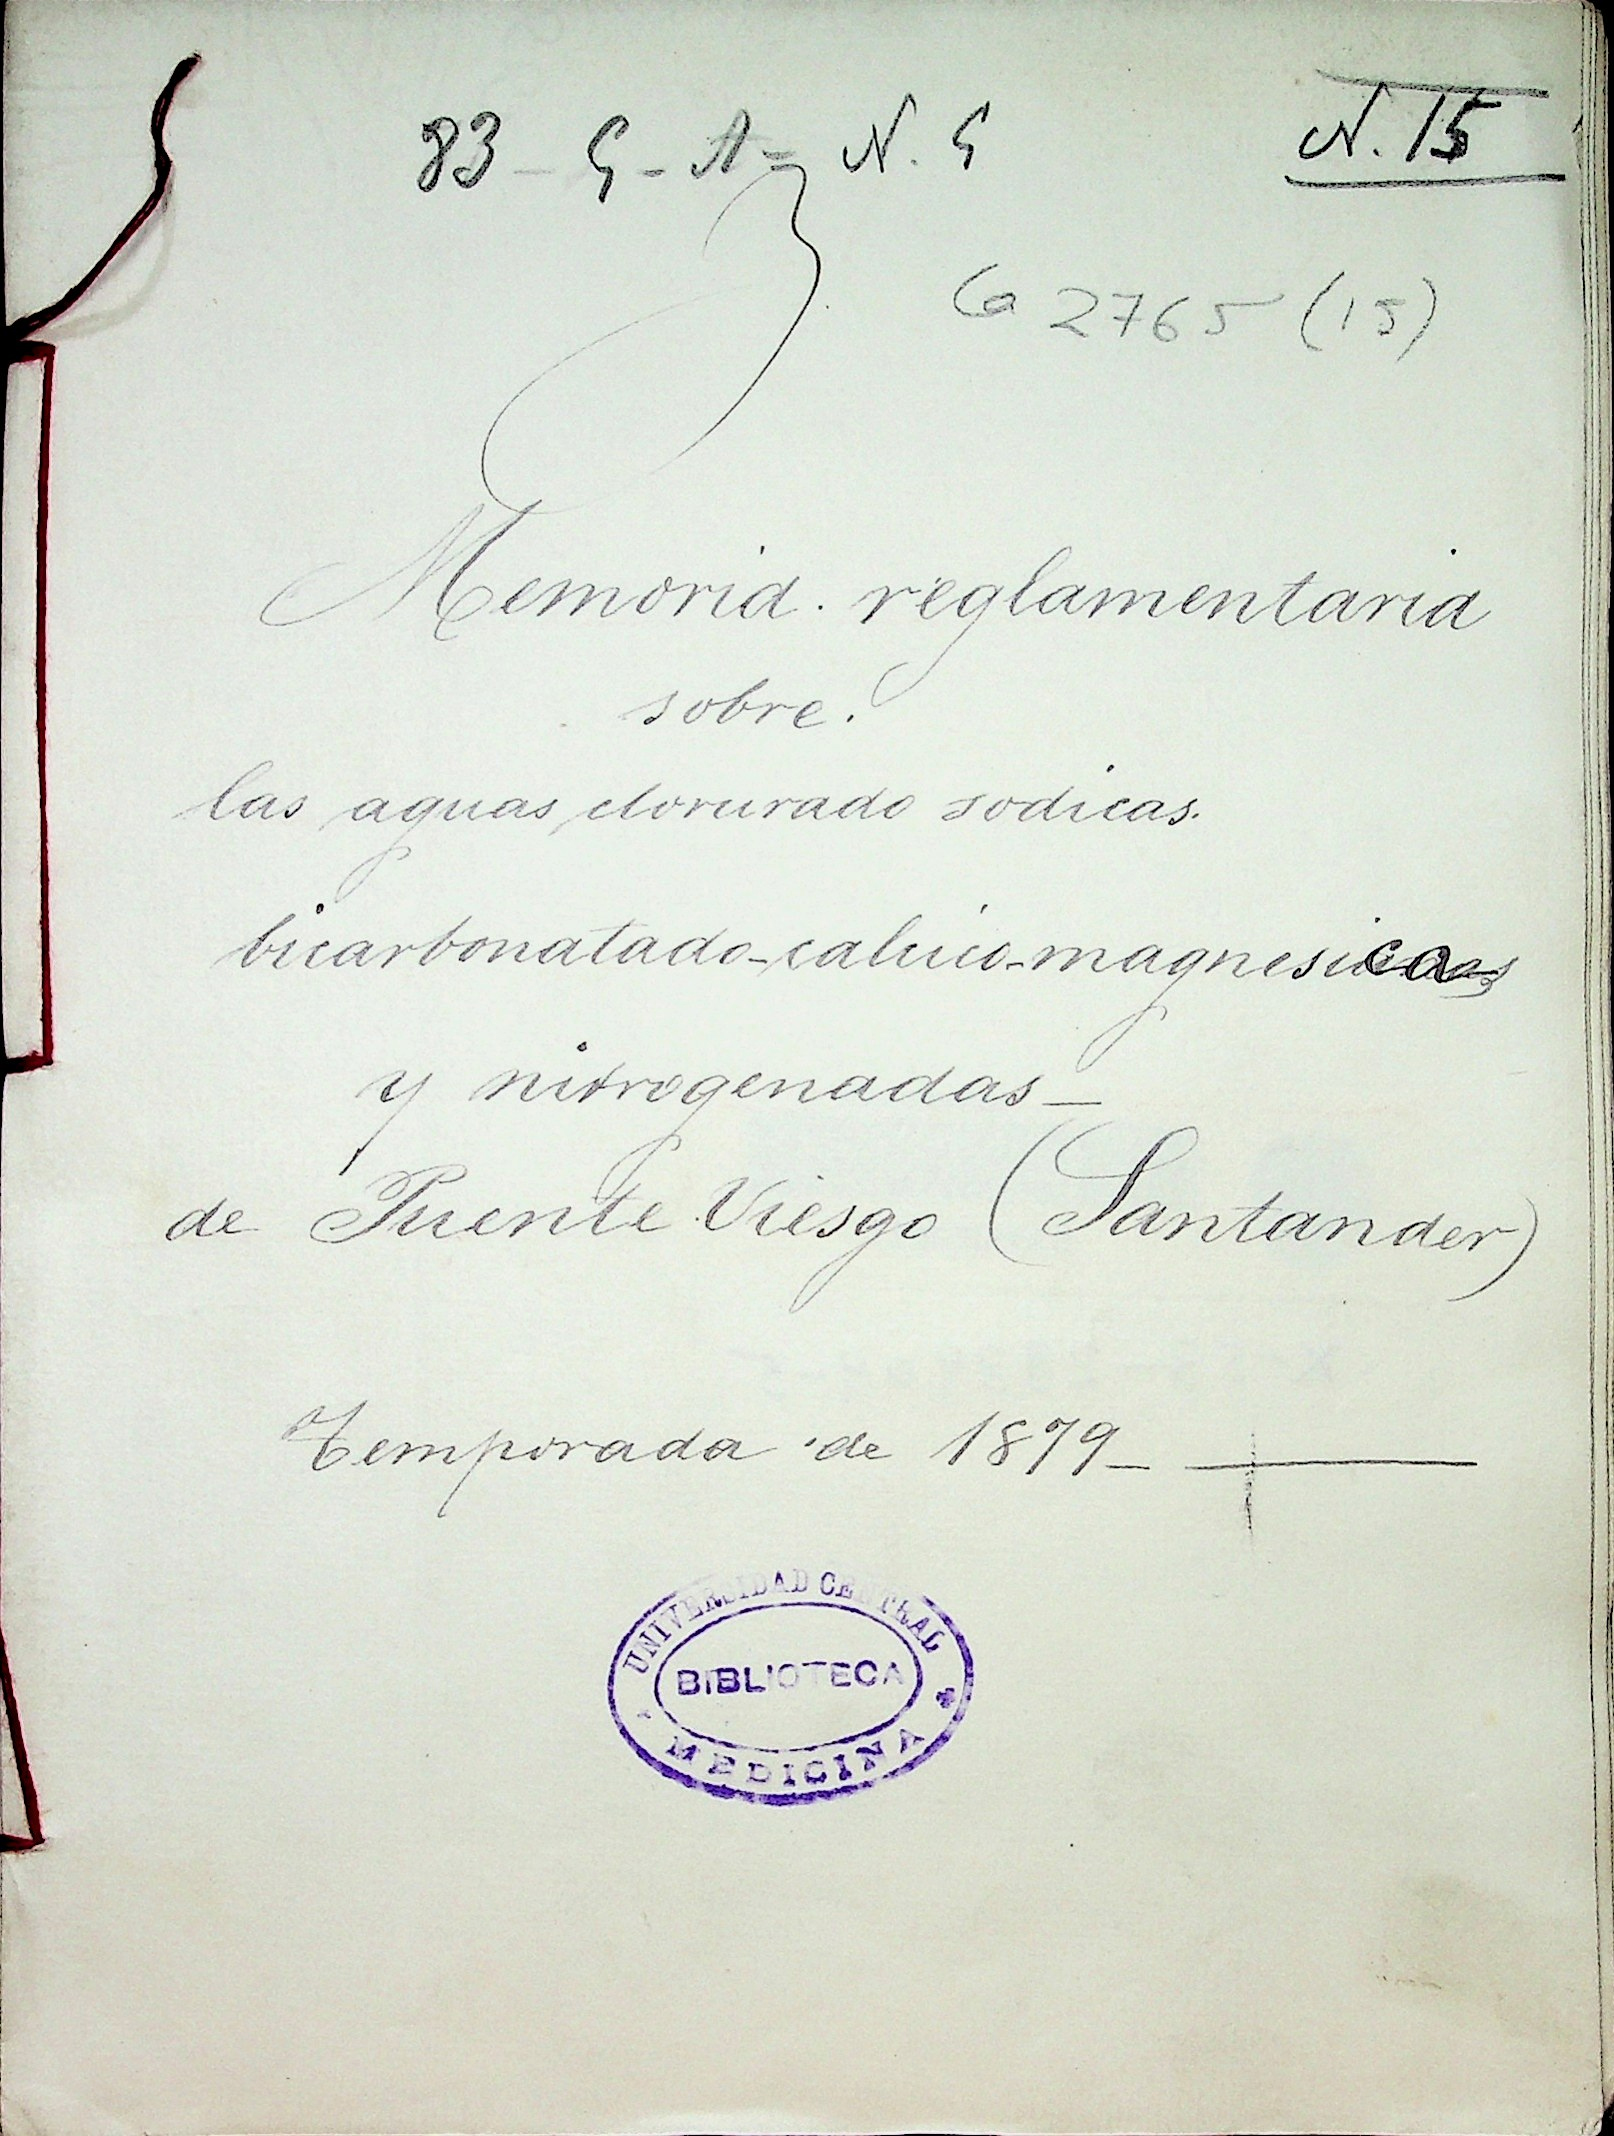 83 - 5 - A - N. 5
N. 15
Ca 2765 (15)
Memoria reglamentaria
sobre
las aguas clorurado sodicas.
bicarbonatado-calcico-magnesicas
y nitrogenadas_
de Puente Viesgo (Santander)
Temporada de 1879_
UNIVERSIDAD CENTRAL
BIBLIOTECA
MEDICINA